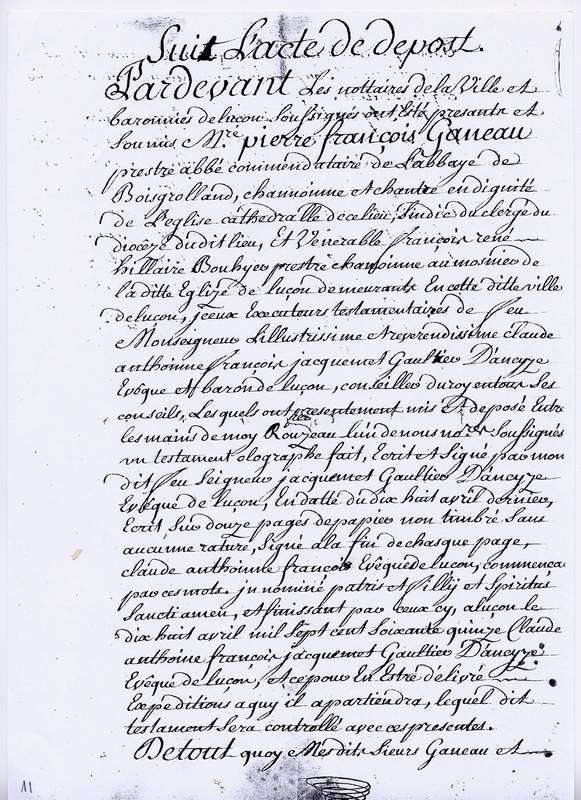 Suit L'acte de depost.
Pardevant Les nottaires de la Ville et
baronnies de luçon soussignés ont Esté presants et
soumis Mre. pierre françois Ganeau
prestre abbé commendataire de L'abbaye de
Boisgrolland, channoinne et chantre en dignité
de L'eglise cathedralle de ce lieu, sindic du clergé du
dioceze dudit lieu, Et Venerable françois rené
hillaire Bouhyer prestre channoinne aumosnier de
la ditte Eglize de luçon demeurants En cette ditte ville
de luçon, iceux Executeurs testamentaires de feu
Monseigneur Lillustrissime et reverendissime claude
anthoinne françois jacquemet Gaultier D'ancyze
Evêque et baron de luçon, conseiller du roy en tous Ses
conseils, Lesquels ont presentement mis Et deposé Entre
les mains de moy Rouzeau lun de nous nores soussignés
un testament olographe fait, Ecrit et Signé par mon
dit feu Seigneur jacquemet Gaultier D'ancyze
Evêque de luçon, En datte du dix huit avril dernier,
Ecrit sur douze pages de papier non timbré sans
aucunne rature, signé a la fin de chasque page,
claude anthoinne francois Evêque de luçon, commença
par ces mots. jn nominé patris et fillij et Spiritus
Sancti amen, et finissant par ceux cy, a luçon le
dix huit avril mil sept cent soixante quinze Claude
anthoine françois jacquemet Gaultier D'ancyze
Evêque de luçon, et ce pour En Estre délivré
Expeditions a quy il appartiendra, lequel dit
testament sera controllé avec ces presentes.
De tout quoy Mesdits Sieurs Ganeau et
11